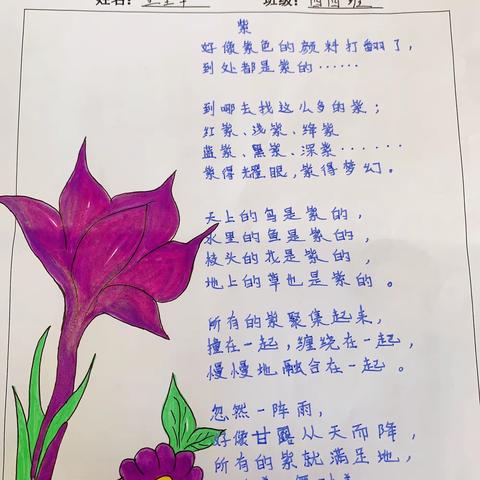 姓名： 班级：四四班
紫
好像紫色的颜料打翻了，
到处都是紫的……
到哪去找这么多的紫；
红紫、浅紫、绛紫
蓝紫、黑紫、深紫……
紫得耀眼，紫得梦幻。
天上的鸟是紫的，
水里的鱼是紫的，
枝头的花是紫的，
地上的草也是紫的。
所有的紫聚集起来，
撞在一起，缠绕在一起，
慢慢地融合在一起。
忽然一阵雨，
好像甘露从天而降，
所有的紫就满足地，